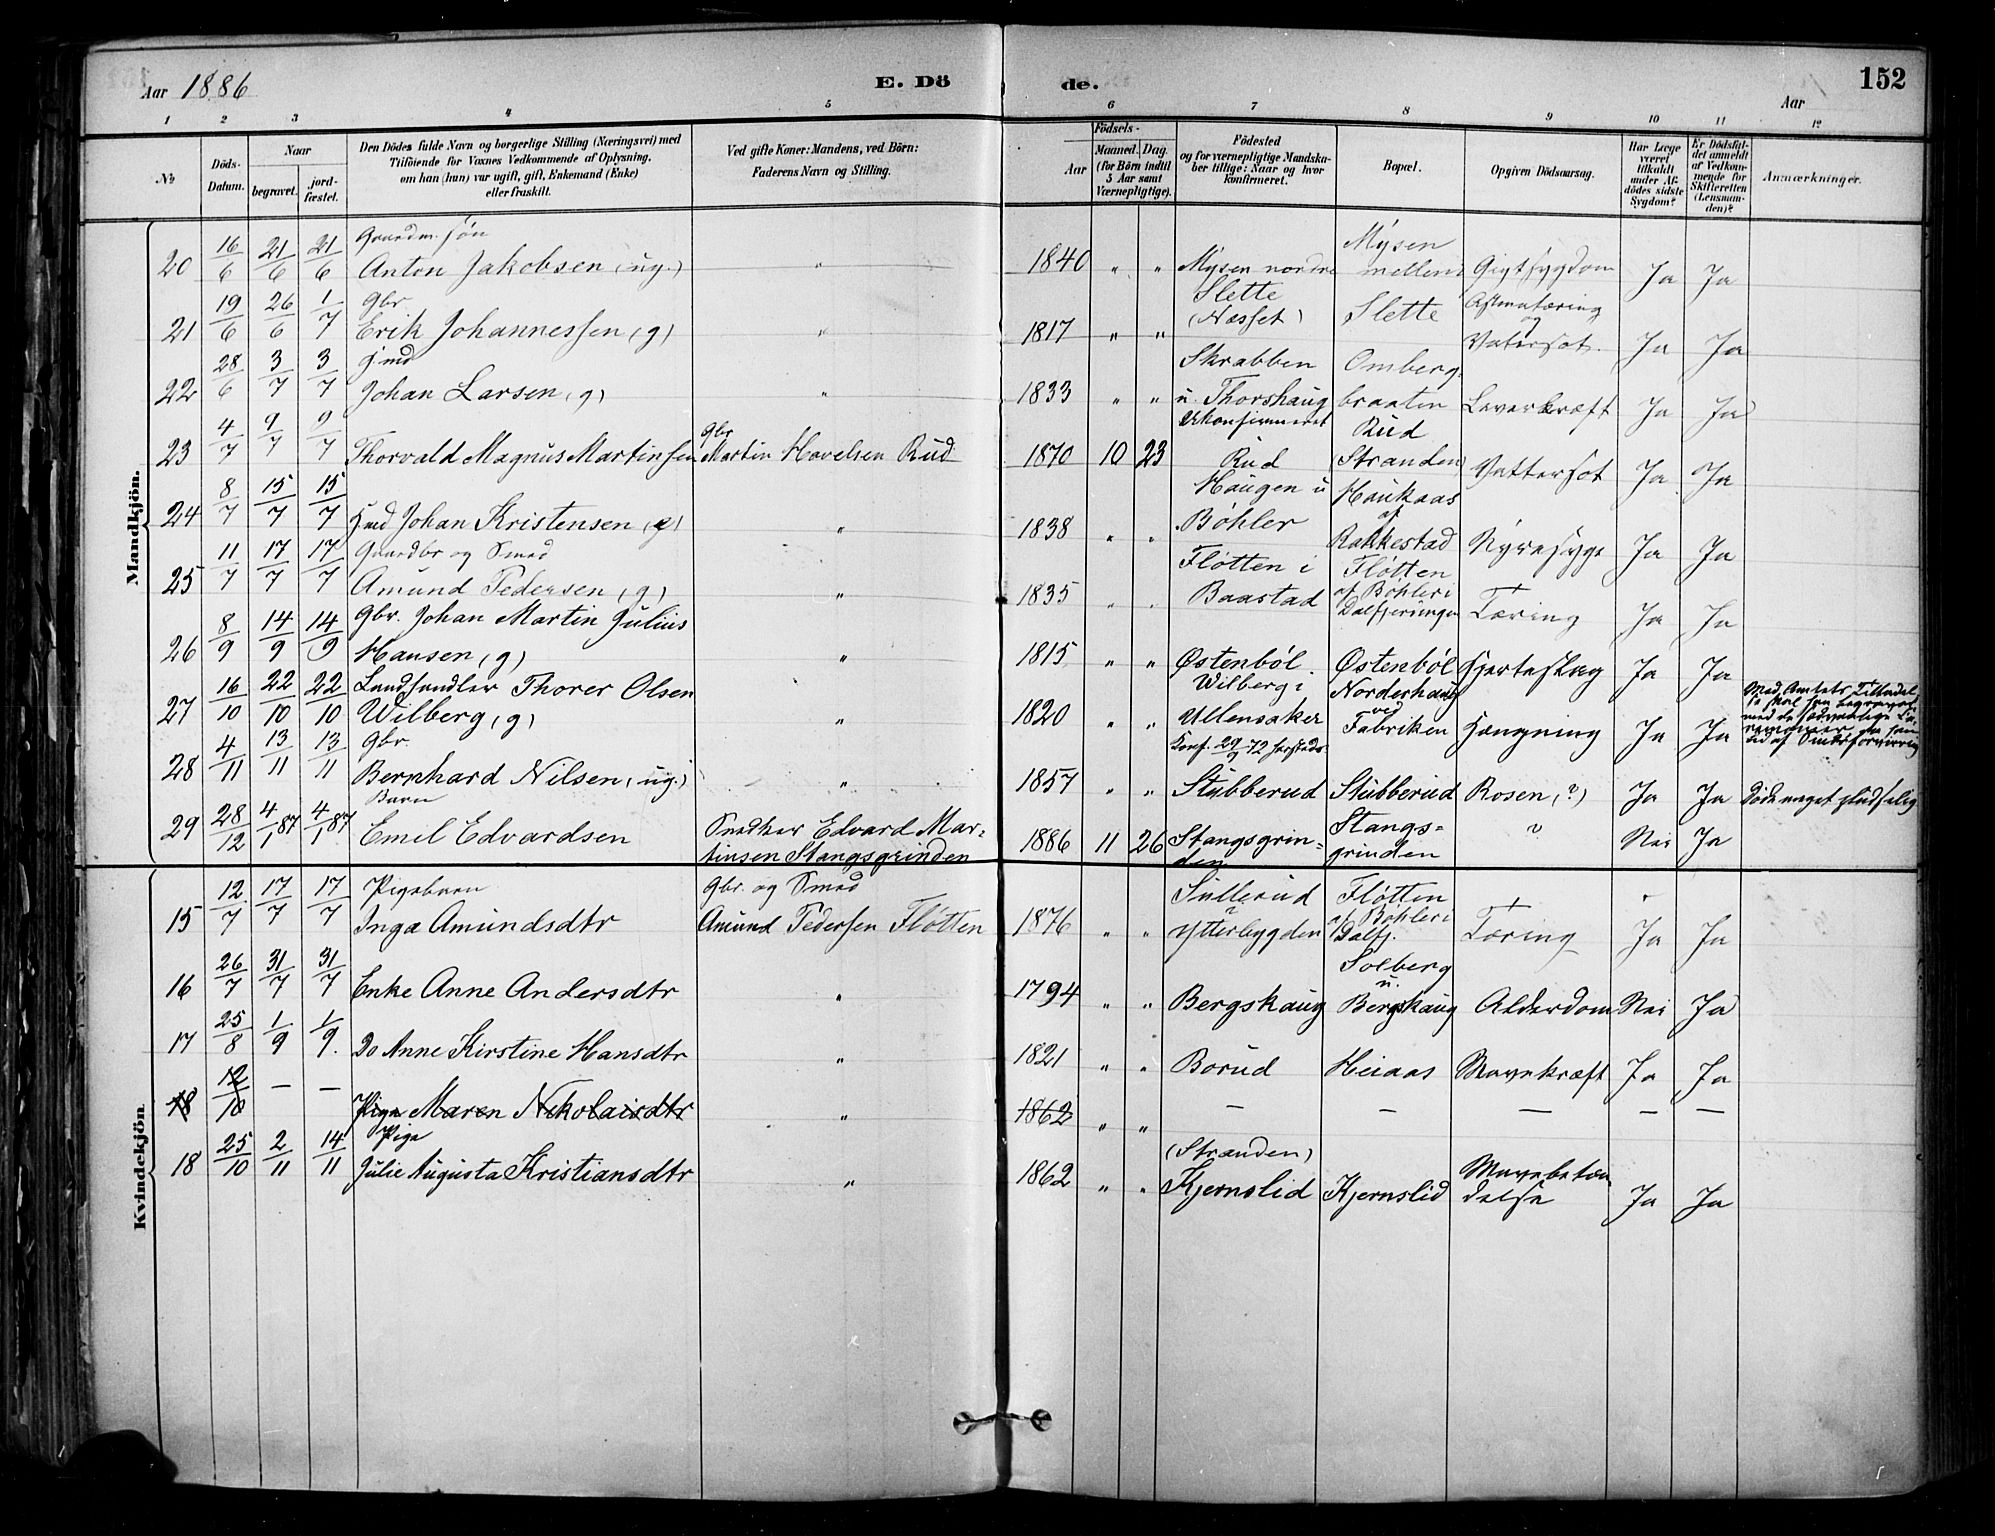 Aar 1886
E. Dö
de.
Aar
152
1 2 3 4 5 6 7 8 9 10 11 12
№
Döds-Datum.
Naar
begravet.
jord-fæstet.
Den Dödes fulde Navn og borgerlige Stilling (Næringsvei) med
Tilföiende for Voxnes Vedkommende af Oplysning,
om han (hun) var ugift, gift, Enkemand (Enke)
eller fraskilt.
Ved gifte Koner: Mandens, ved Börn:
Faderens Navn og Stilling.
Födsels-
Aar
Maaned. Dag.
(for Börn indtil
5 Aar samt
Værnepligtige).
Födested
og for værnepligtige Mandska-
ber tillige: Naar og hvor
konfirmeret.
Bopæl.
Opgiven Dödsaarsag.
Har Læge
været
tilkaldt
under Af-
dödes sidste
Sygdom?
Er Dödsfal-
det anmeldt
af Vedkom-
mende for
Skifteretten
(Lensman-
den)?
Anmærkninger.
Mandkjön.
Gaardm. søn
20 16/6 21/6 21/6 Anton Jakobsen (ug.) " 1840 " " Mysen nordre Mysen mellem Gigtsygdom Ja Ja
Gbr
21 19/6 26/6 1/7 Erik Johannessen (g) " 1817 " " Slette (Næsset) Slette Astmatæring og Vatersot. Ja Ja
Hmd
22 28/6 3/7 3/7 Johan Larsen (g) " 1833 " " Skrabben u. Thorshaug Omberg braaten Leverkræft Ja Ja
Gbr
23 4/7 9/7 9/7 Thorvald Magnus Martinsen Martin Hovelsen Rud 1870 10 23 Ukonfirmeret Rud Rud (Stranden) Vattersot Ja Ja
24 8/7 15/7 15/7 Hmd Johan Kristensen (g) " 1838 " " Haugen u Bøhler Haukaas af Rakkestad Nyresyge Ja Ja
Gaardbr og Smed
25 11/7 17/7 17/7 Amund Pedersen (g) " 1835 " " Fløtten i Baastad Fløtten af Bøhler i Dalfjerdingen Tæring Ja Ja
Gbr. Johan Martin Julius
26 8/9 14/9 14/9 Hansen (g) " 1815 " " Østenbøl Østenbøl Hjerteslag Ja Ja
Landhandler Thorer Olsen
27 16/10 22/10 22/10 Wilberg (g) " 1820 " " Wilberg i Ullensaker Norderhaug ved Fabriken Hængning Ja Ja Med Amtets Tilladel-
Gbr.
28 4/11 13/11 13/11 Bernhard Nilsen (ug.) " 1857 " " Konf. 29/9 72 Stubberud Stubberud Rosen (?) Ja Ja Døde meget pludselig
Barn
29 28/12 4/1 87 4/1 87 Emel Edvardsen Snedker Edvard Mar-
tinsen Stangsgrinden 1886 11 26 Stangsgrin-
den Stangs-
grinden ? Nei Ja
Kvindekjön.
Pigebarn Gbr. og Smed
15 12/7 17/7 17/7 Inga Amundsdtr Amund Pedersen Fløtten 1876 " " Sullerud i Ytterbygden Fløtten af Bøhler i Dalfj. Tæring Ja Ja
16 26/7 31/7 31/7 Enke Anne Andersdtr " 1794 " " Bergskaug Solberg u. Bergskaug Alderdom Nei Ja
17 25/8 1/9 1/9. Do Anne Kirstine Hansdtr " 1821 " " Borud Heiaas Mavekræft Ja Ja
18 12/10 — — Pige Maren Nikolaisdtr " 1862 " " — — — — —
Pige
18 25/10 2/11 14/11 Julie Augusta Kristiansdtr " 1862 " " (Stranden) Kjernslid Kjernslid Mavebetæn
delse Ja Ja